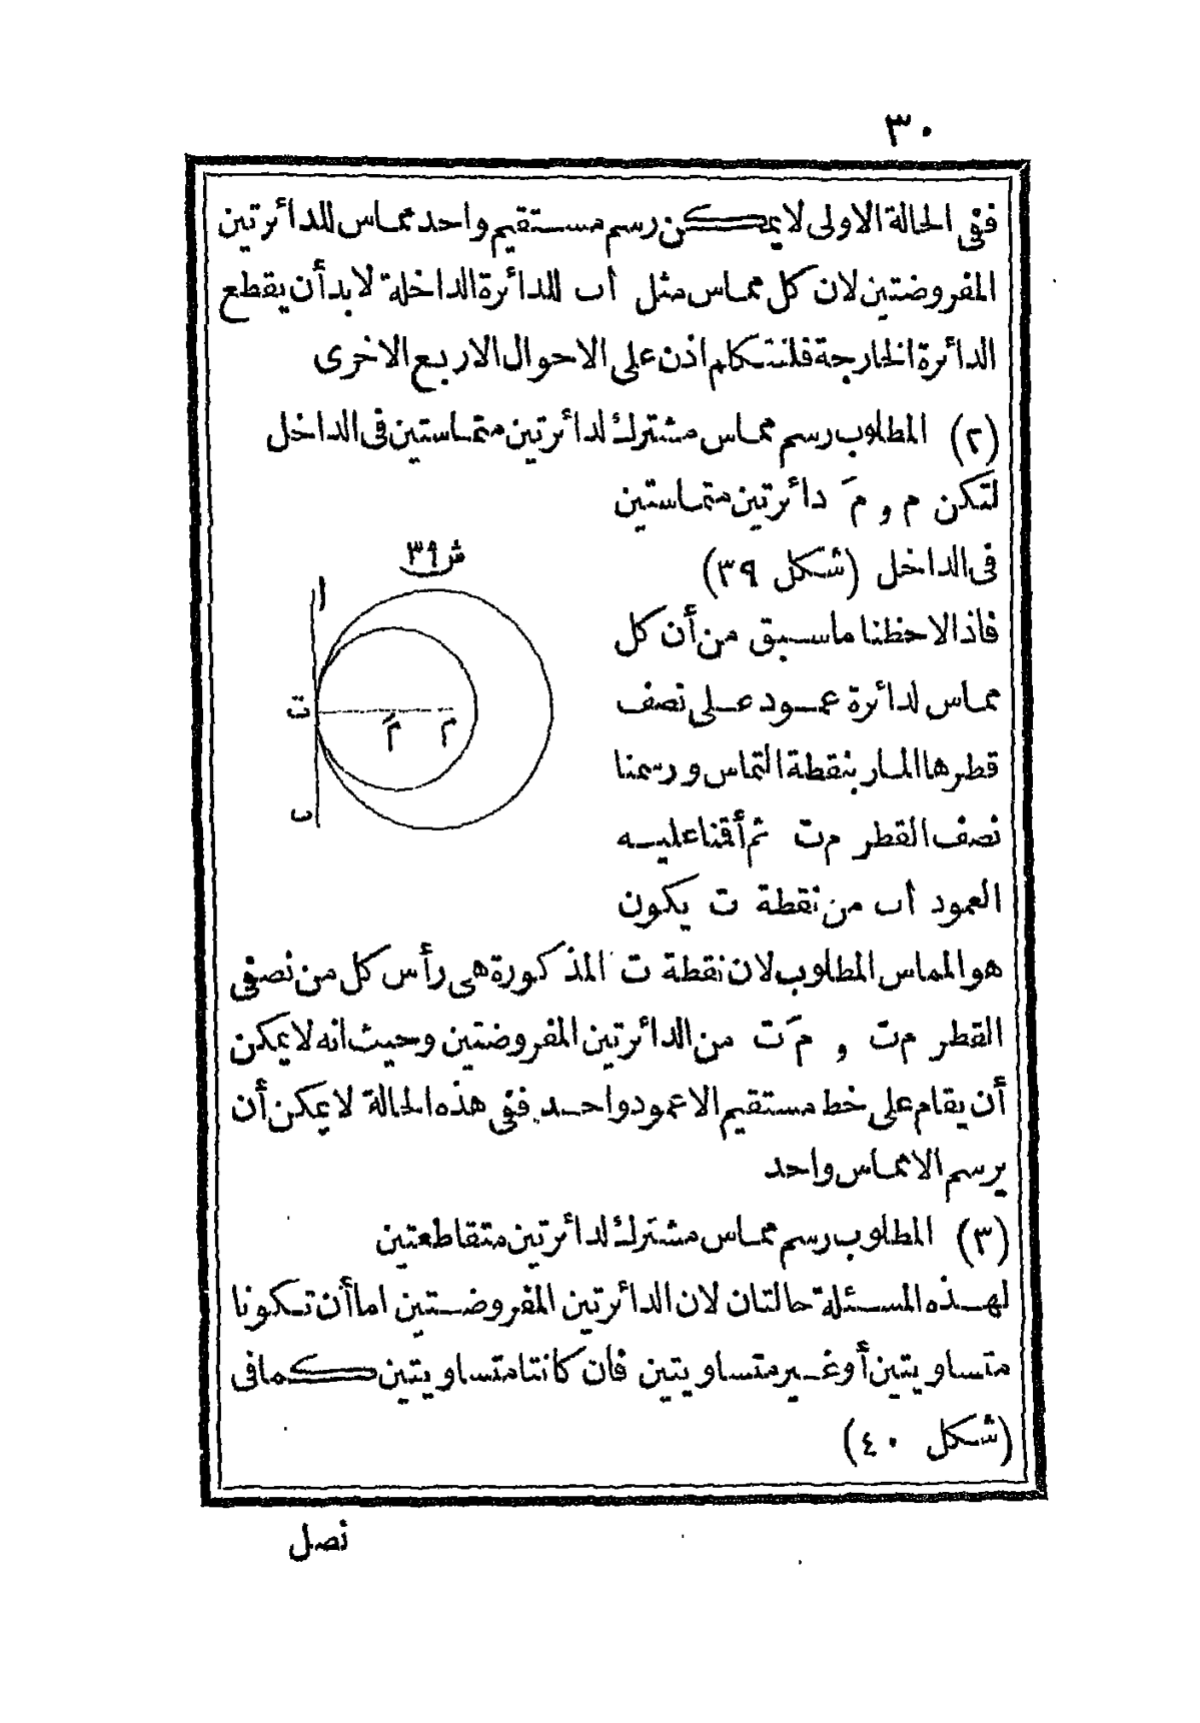 ٣٠
ففى الحالة الاولى لا يمكن رسم مستقيم واحد مماس للدائرتين
المفروضتين لان كل مماس مثل أ ب للدائرة الداخلة لابد أن يقطع
الدائرة الخارجة فلنتكلم اذن على الاحوال الاربع الاخرى
(٢) المطلوب رسم مماس مشترك لدائرتين متماستين فى الداخل
لتكن م و مَ دائرتين متماستين
فى الداخل (شكل ٣٩)
فاذا لاحظنا ما سبق من أن كل
مماس لدائرة عمود على نصف
قطرها المار بنقطة التماس ورسمنا
نصف القطر م ت ثم أقمنا عليه
العمود أ ب من نقطة ت يكون
ش ٣٩
ا
ت
مَ م
ب
هو المماس المطلوب لان نقطة ت المذكورة هى رأس كل من نصفى
القطر م ت و مَ ت من الدائرتين المفروضتين وحيث انه لا يمكن
أن يقام على خط مستقيم الا عمود واحد ففى هذه الحالة لا يمكن أن
يرسم الا مماس واحد
(٣) المطلوب رسم مماس مشترك لدائرتين متقاطعتين
لهذه المسئلة حالتان لان الدائرتين المفروضتين اما أن تكونا
متساويتين أو غير متساويتين فان كانتا متساويتين كما فى
(شكل ٤٠)
نصل